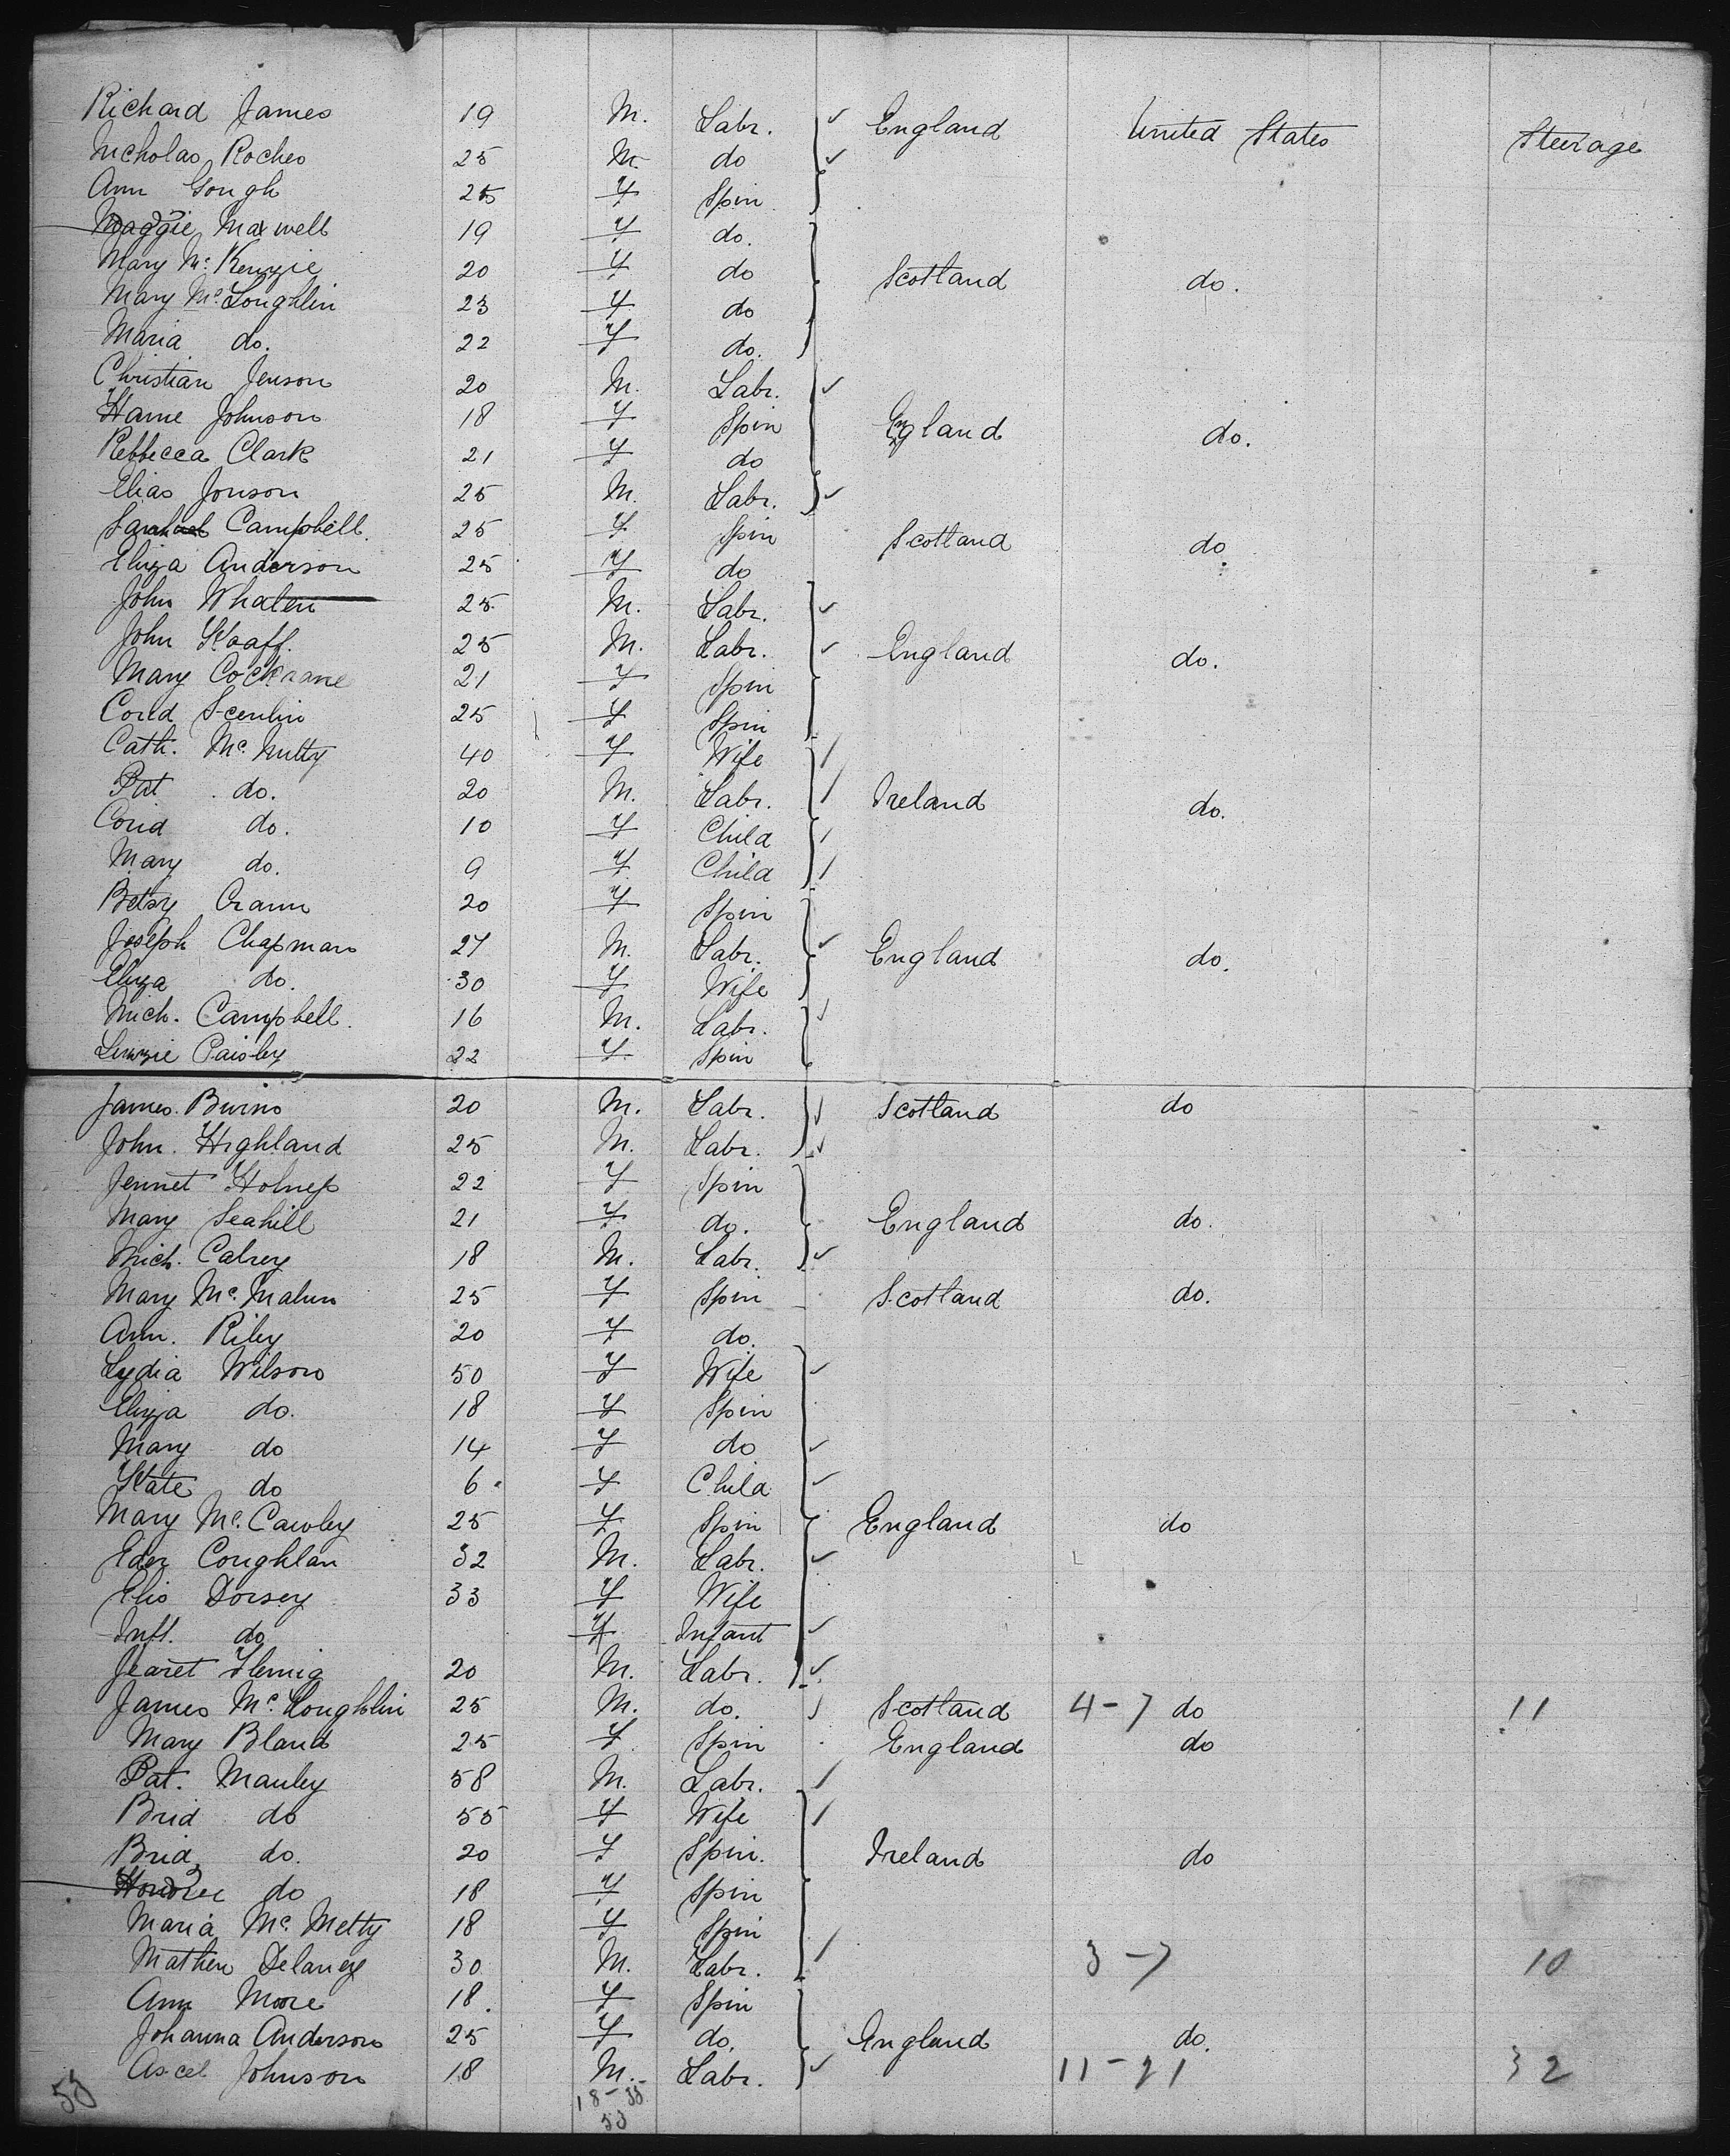 Richard James 19 M. Labr. England United States Steerage
Nicholas Roches 25 M. do
Ann Gough 25 F Spin
Maggie Maxwell 19 F do.
Mary Mc. Kenzie 20 F do Scotland do.
Mary Mc. Loughlin 23 F do
Maria do. 22 F do.
Christian Jenson 20 M. Labr.
Hame Johnson 18 F Spin England do.
Rebbecca Clark 21 F do
Elias Jonson 25 M. Labr.
Sarah Campbell. 25 F Spin Scotland do
Eliza Anderson 25 F do
John Whalen 25 M. Labr.
John Kaaff. 25 M. Labr. England do.
Mary Cockrane 21 F Spin
25 F Spin
Cath. Mc. Nulty 40 F Wife
Pat do. 20 M. Labr. Ireland do.
do. 10 F Child
Mary do. 9 F Child
Betsy Crann 20 F Spin
Joseph Chapman 27 M. Labr. England do.
Eliza do. 30 F Wife
Mich. Campbell. 16 M. Labr.
Lizzie Paisley 22 F Spin
James. Burns 20 M. Labr. Scotland do
John. Highland 25 M. Labr.
Jennet Holness 22 F Spin
Mary Seahill 21 F do. England do.
Mich. Calrey 18 M. Labr.
Mary Mc. Mahon 25 F Spin Scotland do.
Ann. Riley 20 F do.
Lydia Wilson 50 F Wife
Eliza do. 18 F Spin
Mary do 14 F do
Kate do 6 F Child
Mary Mc. Cawley 25 F Spin England do
Coughlan 32 M. Labr.
Elis Dorsey 33 F Wife
Inft. do F Infant
Flemig 20 M. Labr.
James Mc. Loughlin 25 M. do. Scotland 4-7 do 11
Mary Bland 25 F Spin England do
Pat. Manley 58 M. Labr.
Brid do 55 F Wife
Brid do. 20 F Spin. Ireland do
do 18 F Spin
Maria Mc. Metty 18 F Spin
Mathew Delaney 30 M. Labr. 3-7 10
Ann Moore 18. F Spin
Johanna Anderson 25 F do. England do.
Ascel Johnson 18 M. Labr. 11-21 32
53 18-35
53